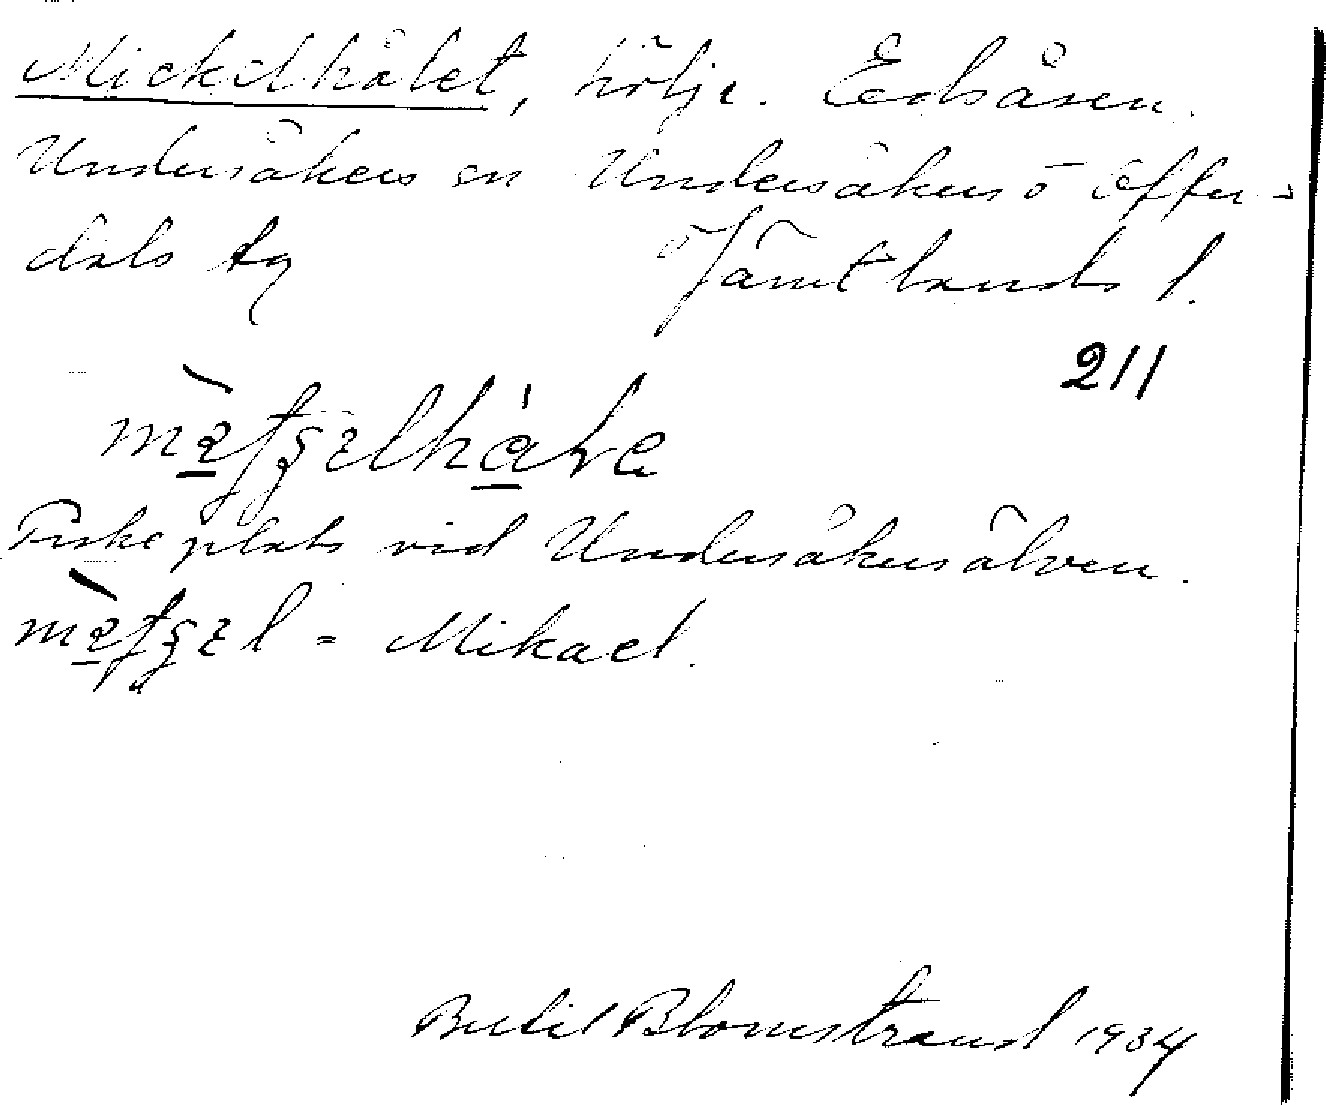 Mickelhålet, hölje. Edsåsen.
Undersåkers sn Undersåkers o Offer-
dals tg Jämtlands l.
211
Fiskeplats vid Undersåkersälven.
= Mikael.
Bertil Blomstrand 1934